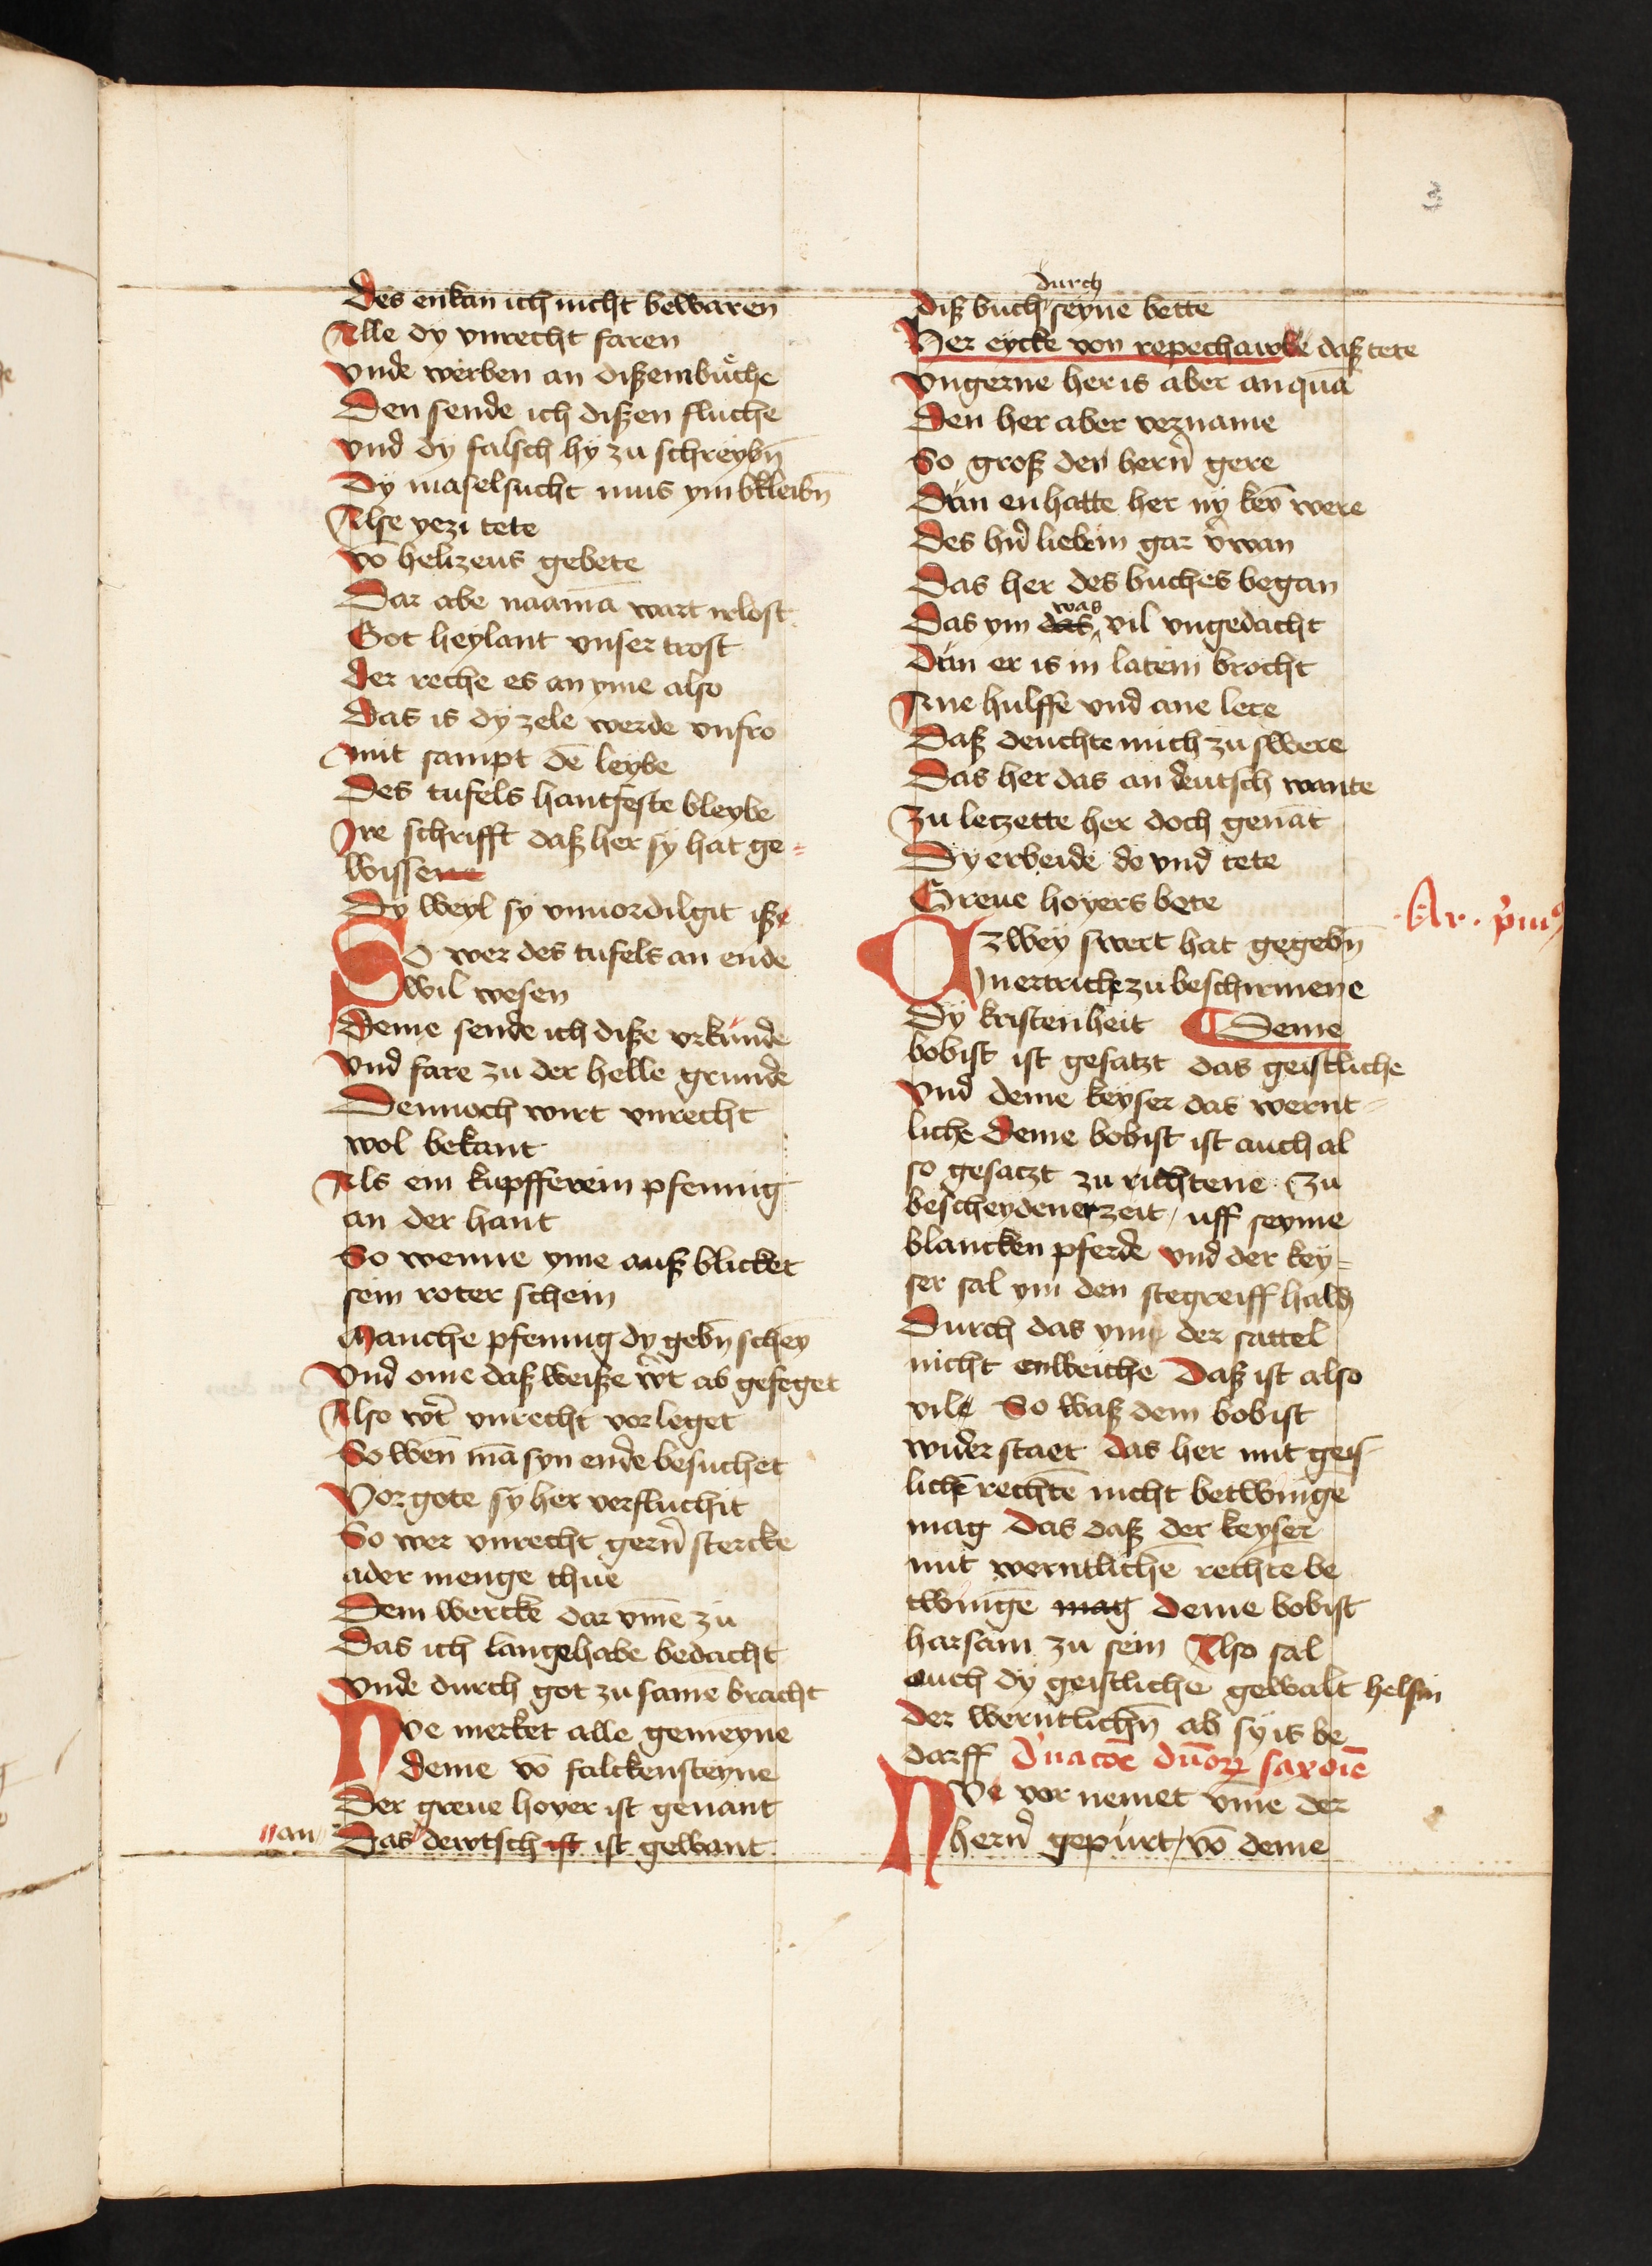 3
Des enkan ich nicht bewaren
Alle dy vnrecht faren
vnde werben an dißem bůche
Den sende ich dißen fluche
vnd dy falsch hy zu schreybn̄
Dy maselsucht mus ym bkleibn̄
Alse yezi tete
vō helizeus gebete
Dar abe naamā wart irlost
Got heylant vnser trost
der reche es an yme also
Das is dy zele werde vnfro
mit sampt dē leybe
Des tufels hantfeste bleybe
Ire schrifft daß her sy hat ge=
wissene
Dy weyl sy vnuordilgit iße
So wer des tufels an ende
wil wesen
Deme sende ich diße vrkunde
vnd fare zu der helle grunde
Dennoch wirt vnrecht
wol bekant
Als ein kupfferein pfennig
an der hant
So wenne yme auß blicket
sein roter schein
Manche pfennig dy gebn̄ schey
vnd ome daß weiße w't ab gefeget
Also w't vnrecht vorleget
So wen̄ mā syn ende besuchet
Vor gote sy her verfluchit
So wer vnrecht gern̄ stercke
ader menge thue
Dem wercke dar vmē zu
Das ich lange habe bedacht
vnde durch got zu samē bracht
Nve merket alle gemeyne
deme vō falckensteyne
Der greue hoyer ist genant
an Das dewtsch ist ist gewant
durch
diß buch seyne bette
Her eycke von repechawe daß tete
vngerne her is aber an quā
Den her aber vernāme
So groß den hern̄ gere
Dan en hatte her ny keȳ were
Des hn̄ liebein gar v̄wan
Das her des buches began
was
Das ym das vil vngedacht
Dan er is in latein brocht
Ane hulffe vnd ane lere
Daß deuchte mich zu swere
Das her das an deutsch wante
Zu letzette her doch genāt
Dy erbeide do vnd tete
Greue hoyers bete
Ar. pim9
zwey swert hat gegebn̄
in ertrich zu beschirmene
Dy kristenheit Deme
bobist ist gesatzt das geistliche
vnd deme keyser das wernt=
liche Deme bobist ist auch al
so gesatzt zu richtene Zu
bescheydener zeit / uff seyme
blancken pferde vnd der key=
ser sal ym den stegreiff haldn
Durch das ym der sattel
nicht enweiche Daß ist also
vile So waß dem bobist
widerstaet das her mit geis
lichē rechtē nicht betwinge
mag Das daß der keyser
mit werntlichē rechte be
twingē mag deme bobist
harsam zu sein Also sal
auch dy geistliche gewalt helfin
der werntlichn̄ ab sy is be
darff
Nve vor nemet vmē der
hern̄ gepurt / vō deme